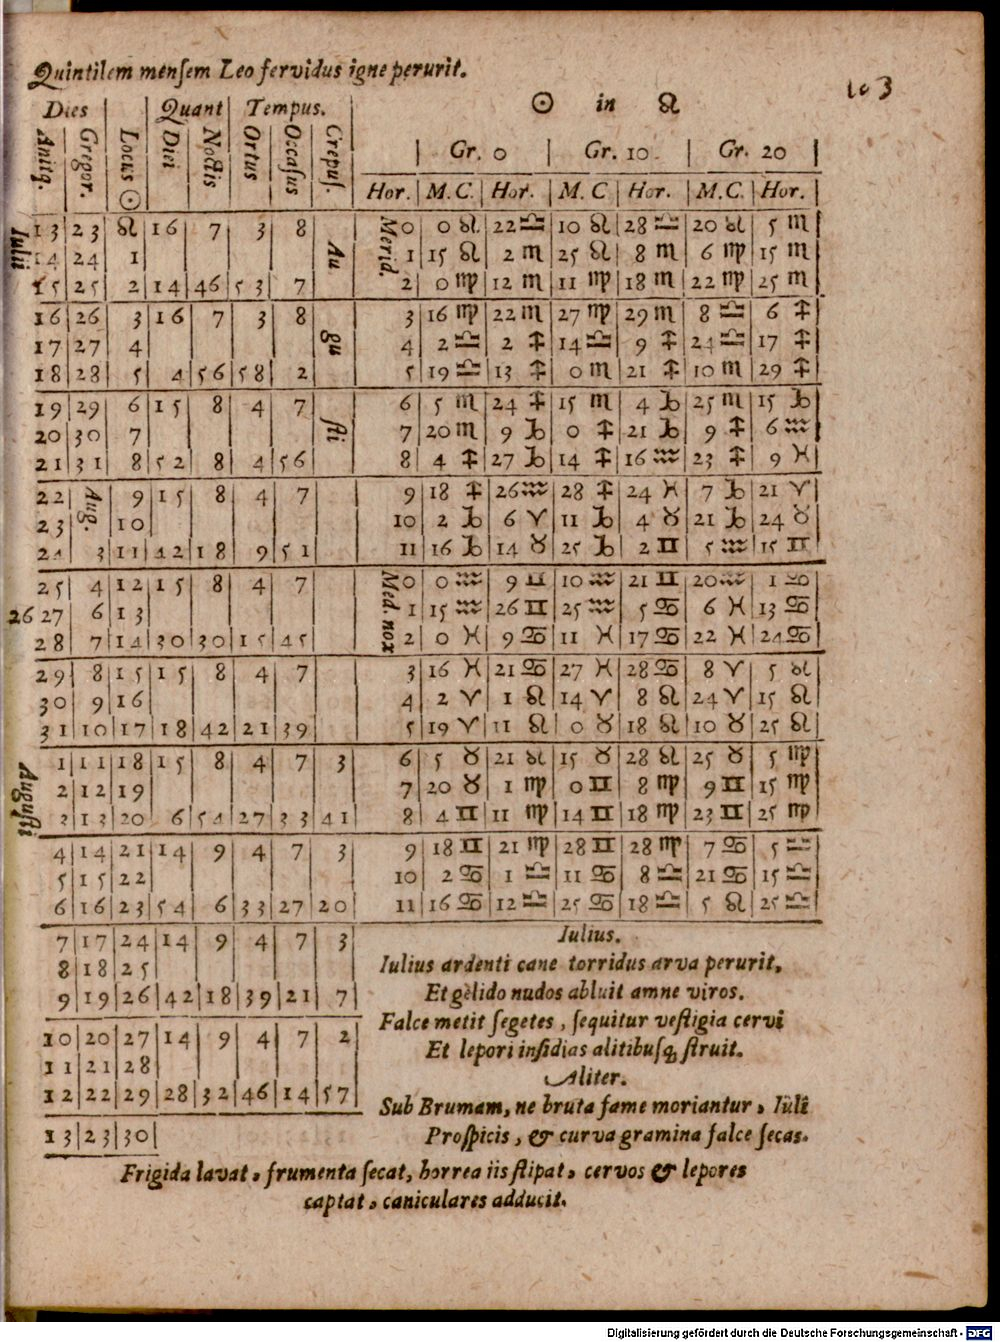 Quintilem mensem Leo fervidus igne perurit.
103
Dies | Quant | Tempus. ☉ in ♌
Antiq. | Gregor. | Locus ☉ | Diei | Noctis | Ortus | Occasus | Crepus.
Gr. 0 | Gr. 10 | Gr. 20
Hor. | M. C. | Hor. | M. C | Hor. | M. C. | Hor.
Iulii
Au
gu
sti
Merid.
13 | 23 | ♌ | 16 | 7 | 3 | 8 | 0 | 0 ♌ | 22 ♎ | 10 ♌ | 28 ♎ | 20 ♌ | 5 ♏
14 | 24 | 1 | 1 | 15 ♌ | 2 ♏ | 25 ♌ | 8 ♏ | 6 ♍ | 15 ♏
15 | 25 | 2 | 14 | 46 | 53 | 7 | 2 | 0 ♍ | 12 ♏ | 11 ♍ | 18 ♏ | 22 ♍ | 25 ♏
16 | 26 | 3 | 16 | 7 | 3 | 8 | 3 | 16 ♍ | 22 ♏ | 27 ♍ | 29 ♏ | 8 ♎ | 6 ♐
17 | 27 | 4 | 4 | 2 ♎ | 2 ♐ | 14 ♎ | 9 ♐ | 24 ♎ | 17 ♐
18 | 28 | 5 | 4 | 56 | 58 | 2 | 5 | 19 ♎ | 13 ♐ | 0 ♏ | 21 ♐ | 10 ♏ | 29 ♐
19 | 29 | 6 | 15 | 8 | 4 | 7 | 6 | 5 ♏ | 24 ♐ | 15 ♏ | 4 ♑ | 25 ♏ | 15 ♑
20 | 30 | 7 | 7 | 20 ♏ | 9 ♑ | 0 ♐ | 21 ♑ | 9 ♐ | 6 ♒
21 | 31 | 8 | 52 | 8 | 4 | 56 | 8 | 4 ♐ | 27 ♑ | 14 ♐ | 16 ♒ | 23 ♐ | 9 ♓
Aug.
22 | 9 | 15 | 8 | 4 | 7 | 9 | 18 ♐ | 26 ♒ | 28 ♐ | 24 ♓ | 7 ♑ | 21 ♈
23 | 10 | 10 | 2 ♑ | 6 ♈ | 11 ♑ | 4 ♉ | 21 ♑ | 24 ♉
24 | 3 | 11 | 42 | 18 | 9 | 51 | 11 | 16 ♑ | 14 ♉ | 25 ♑ | 2 ♊ | 5 ♒ | 15 ♊
Med. nox
25 | 4 | 12 | 15 | 8 | 4 | 7 | 0 | 0 ♒ | 9 ♊ | 10 ♒ | 21 ♊ | 20 ♒ | 1 ♋
26 27 | 6 | 13 | 1 | 15 ♒ | 26 ♊ | 25 ♒ | 5 ♋ | 6 ♓ | 13 ♋
28 | 7 | 14 | 30 | 30 | 15 | 45 | 2 | 0 ♓ | 9 ♋ | 11 ♓ | 17 ♋ | 22 ♓ | 24 ♋
29 | 8 | 15 | 15 | 8 | 4 | 7 | 3 | 16 ♓ | 21 ♋ | 27 ♓ | 28 ♋ | 8 ♈ | 5 ♌
30 | 9 | 16 | 4 | 2 ♈ | 1 ♌ | 14 ♈ | 8 ♌ | 24 ♈ | 15 ♌
31 | 10 | 17 | 18 | 42 | 21 | 39 | 5 | 19 ♈ | 11 ♌ | 0 ♉ | 18 ♌ | 10 ♉ | 25 ♌
Augusti
1 | 11 | 18 | 15 | 8 | 4 | 7 | 3 | 6 | 5 ♉ | 21 ♌ | 15 ♉ | 28 ♌ | 25 ♉ | 5 ♍
2 | 12 | 19 | 7 | 20 ♉ | 1 ♍ | 0 ♊ | 8 ♍ | 9 ♊ | 15 ♍
3 | 13 | 20 | 6 | 54 | 27 | 33 | 41 | 8 | 4 ♊ | 11 ♍ | 14 ♊ | 18 ♍ | 23 ♊ | 25 ♍
4 | 14 | 21 | 14 | 9 | 4 | 7 | 3 | 9 | 18 ♊ | 21 ♍ | 28 ♊ | 28 ♍ | 7 ♋ | 5 ♎
5 | 15 | 22 | 10 | 2 ♋ | 1 ♎ | 11 ♋ | 8 ♎ | 21 ♋ | 15 ♎
6 | 16 | 23 | 54 | 6 | 33 | 27 | 20 | 11 | 16 ♋ | 12 ♎ | 25 ♋ | 18 ♎ | 5 ♌ | 25 ♎
7 | 17 | 24 | 14 | 9 | 4 | 7 | 3
8 | 18 | 25
9 | 19 | 26 | 42 | 18 | 39 | 21 | 7
10 | 20 | 27 | 14 | 9 | 4 | 7 | 2
11 | 21 | 28
12 | 22 | 29 | 28 | 32 | 46 | 14 | 57
13 | 23 | 30
Iulius.
Iulius ardenti cane torridus arva perurit,
Et gelido nudos abluit amne viros.
Falce metit segetes, sequitur vestigia cervi
Et lepori insidias alitibusq; struit.
Aliter.
Sub Brumam, ne bruta fame moriantur, Iuli
Prospicis, & curva gramina falce secas.
Frigida lavat, frumenta secat, horrea iis stipat, cervos & lepores
captat, caniculares adducit.
Digitalisierung gefördert durch die Deutsche Forschungsgemeinschaft - DFG